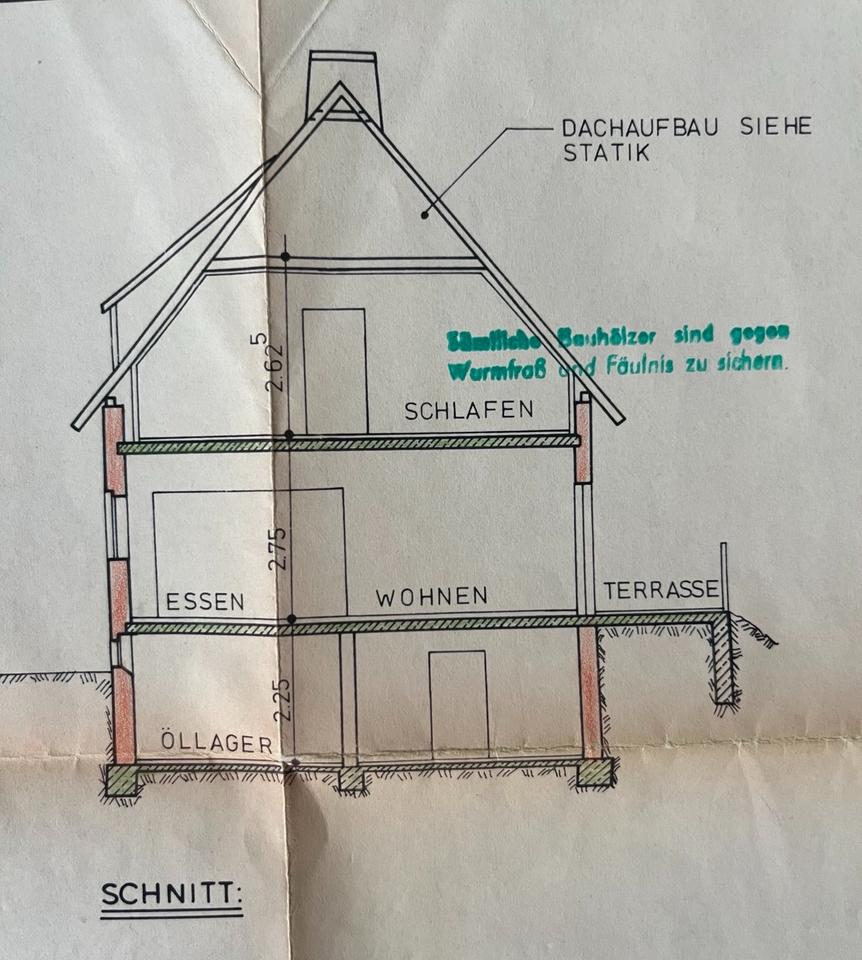 DACHAUFBAU SIEHE
STATIK
Sämtliche Bauhölzer sind gegen
Wurmfraß und Fäulnis zu sichern.
2.62⁵
SCHLAFEN
2.75
ESSEN
WOHNEN
TERRASSE
2.25
ÖLLAGER
SCHNITT: